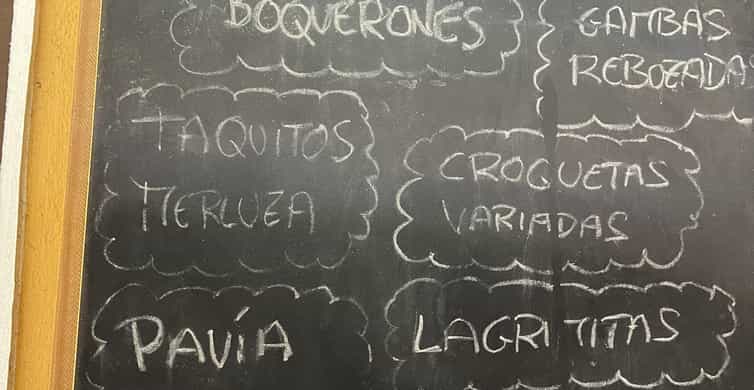 BOQUERONES
GAMBAS
REBOZADAS
TAQUITOS
MERLUZA
CROQUETAS
VARIADAS
PAVÍA
LAGRIMITAS